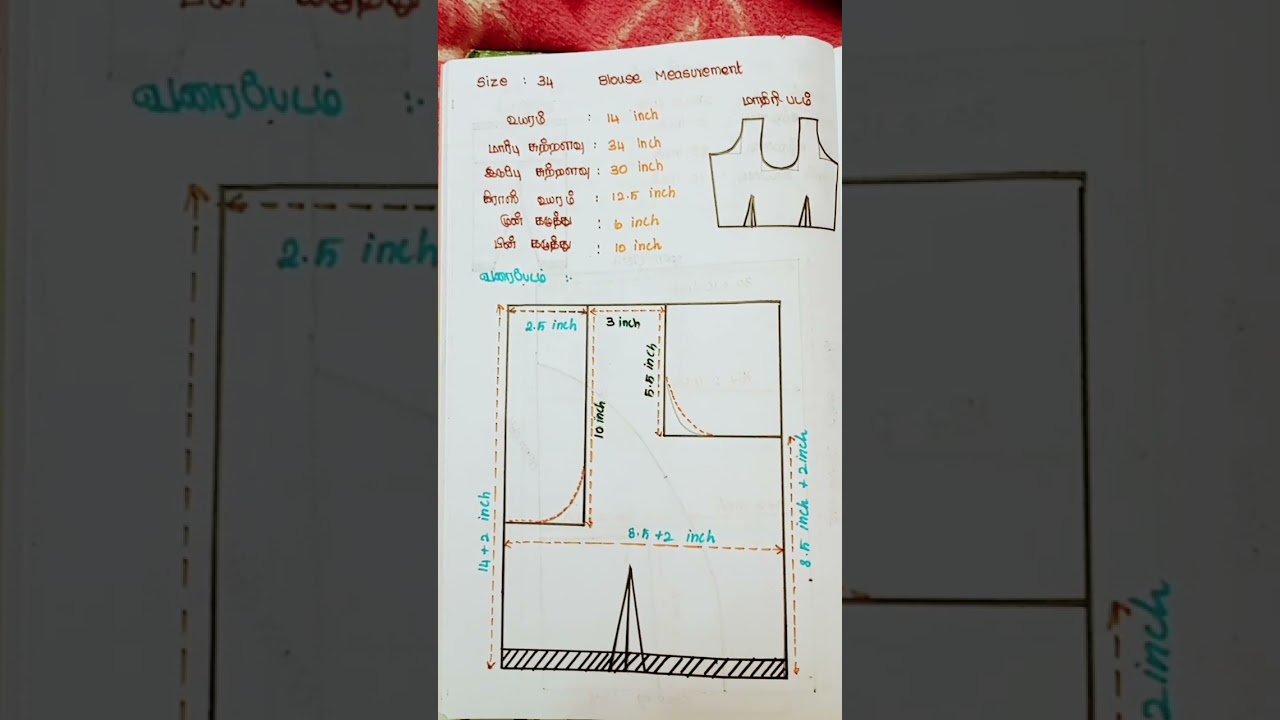 Size : 34 Blouse Measurement
மாதிரி படம்
உயரம் : 14 inch
மார்பு சுற்றளவு : 34 Inch
இடுப்பு சுற்றளவு : 30 inch
கிராஸ் உயரம் : 12.5 inch
முன் கழுத்து : 6 inch
பின் கழுத்து : 10 inch
வரைபேடம் :-
2.5 inch
3 inch
5.5 inch
10 inch
14 + 2 inch
8.5 + 2 inch
8.5 inch + 2 inch
வரைபேடம் :-
2.5 inch
2 inch